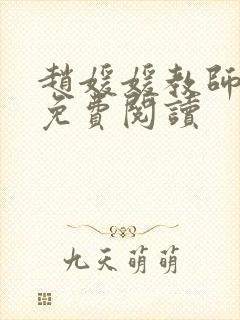 趙媛媛教師
免費閱讀
九天萌萌